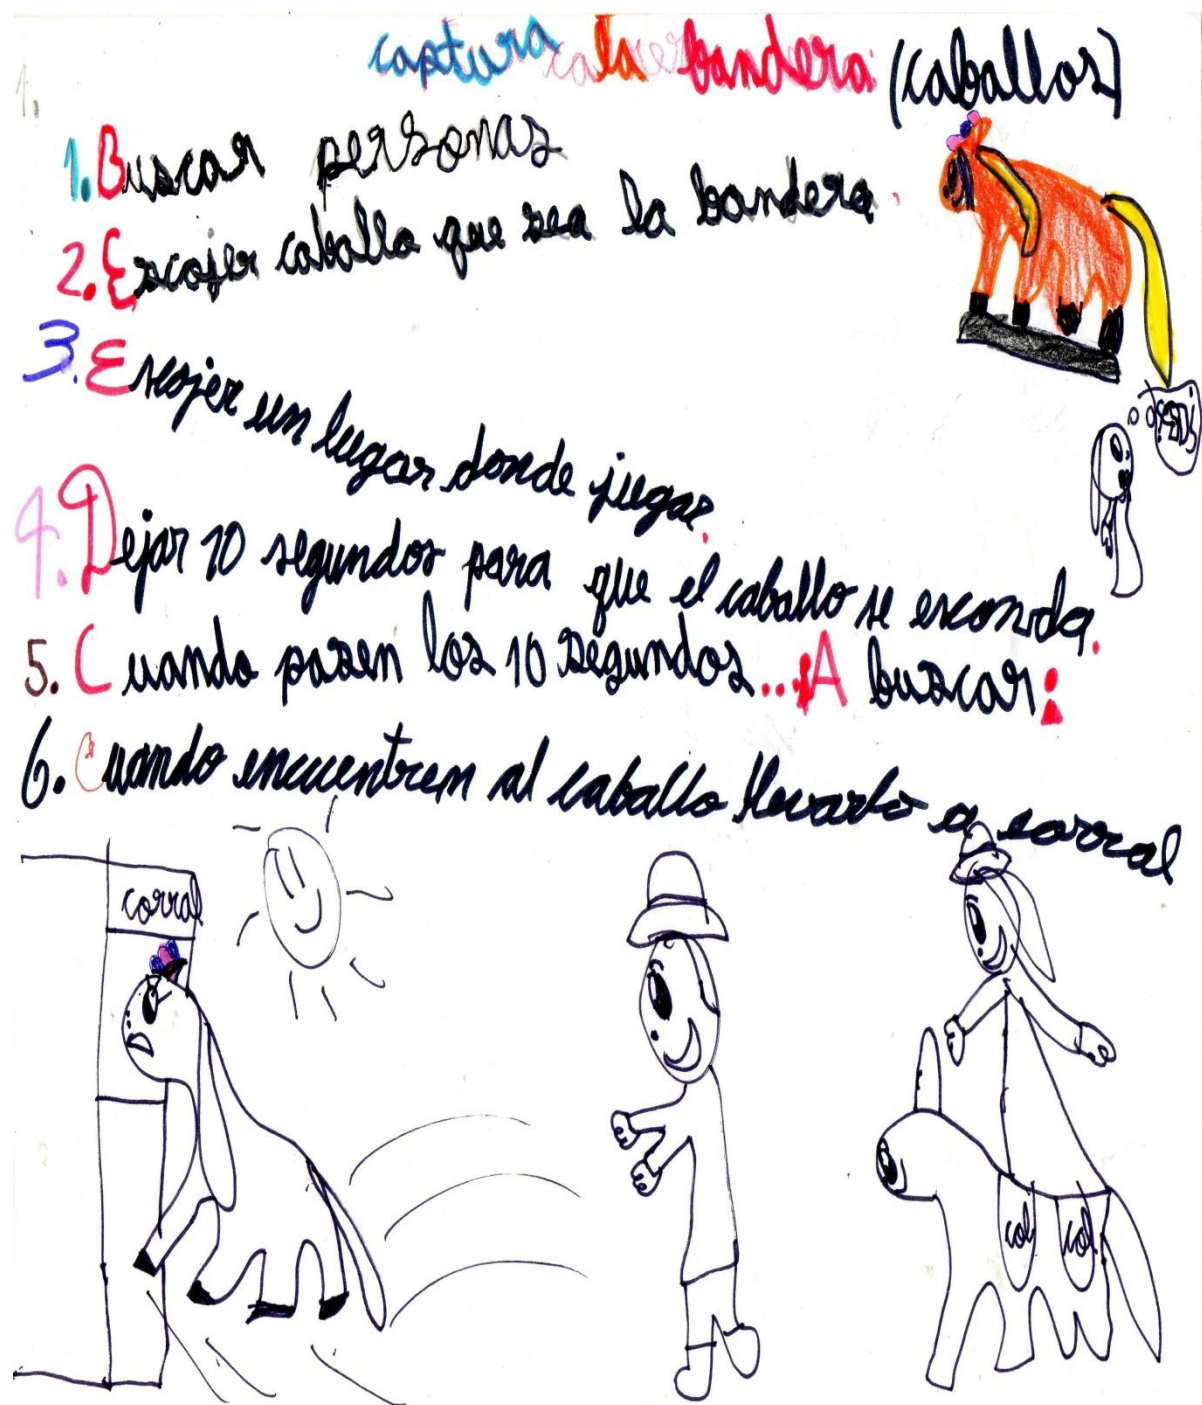 1.
captura la bandera (caballos)
1. Buscar personas
2. Escojer caballo que sea la bandera.
3. Escojer un lugar donde jugar.
4. Dejar 10 segundos para que el caballo se esconda.
5. Cuando pasen los 10 segundos...¡A buscar!
6. Cuando encuentren al caballo llevarlo a corral
corral
col col